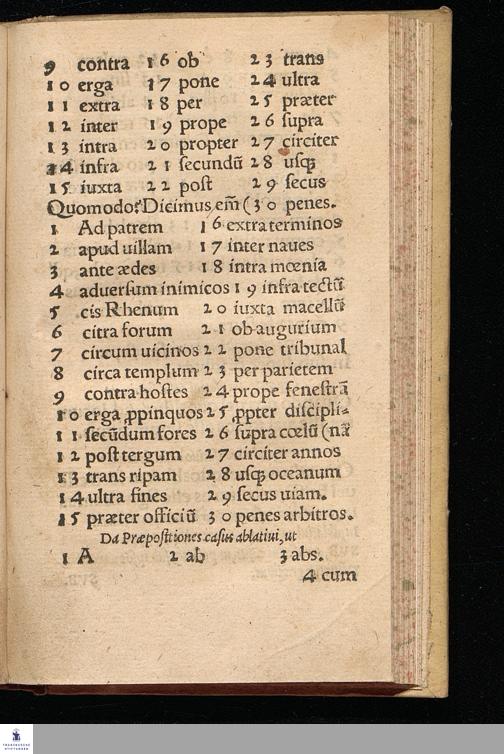 9 contra 16 ob 23 trans
10 erga 17 pone 24 ultra
11 extra 18 per 25 præter
12 inter 19 prope 26 supra
13 intra 20 propter 27 circiter
14 infra 21 secundũ 28 usq;
15 iuxta 22 post 29 secus
Quomodo? Dicimus em̃ (30 penes.
1 Ad patrem 16 extra terminos
2 apud uillam 17 inter naues
3 ante ædes 18 intra mœnia
4 aduersum inimicos 19 infra tectũ
5 cis Rhenum 20 iuxta macellũ
6 citra forum 21 ob augurium
7 circum uicinos 22 pone tribunal
8 circa templum 23 per parietem
9 contra hostes 24 prope fenestrã
10 erga ꝓpinquos 25 ꝓpter discipli=
11 secũdum fores 26 supra cœlũ (nã
12 post tergum 27 circiter annos
13 trans ripam 28 usq; oceanum
14 ultra fines 29 secus uiam.
15 præter officiũ 30 penes arbitros.
Da Præpositiones casus ablatiui, ut
1 A 2 ab 3 abs.
4 cum